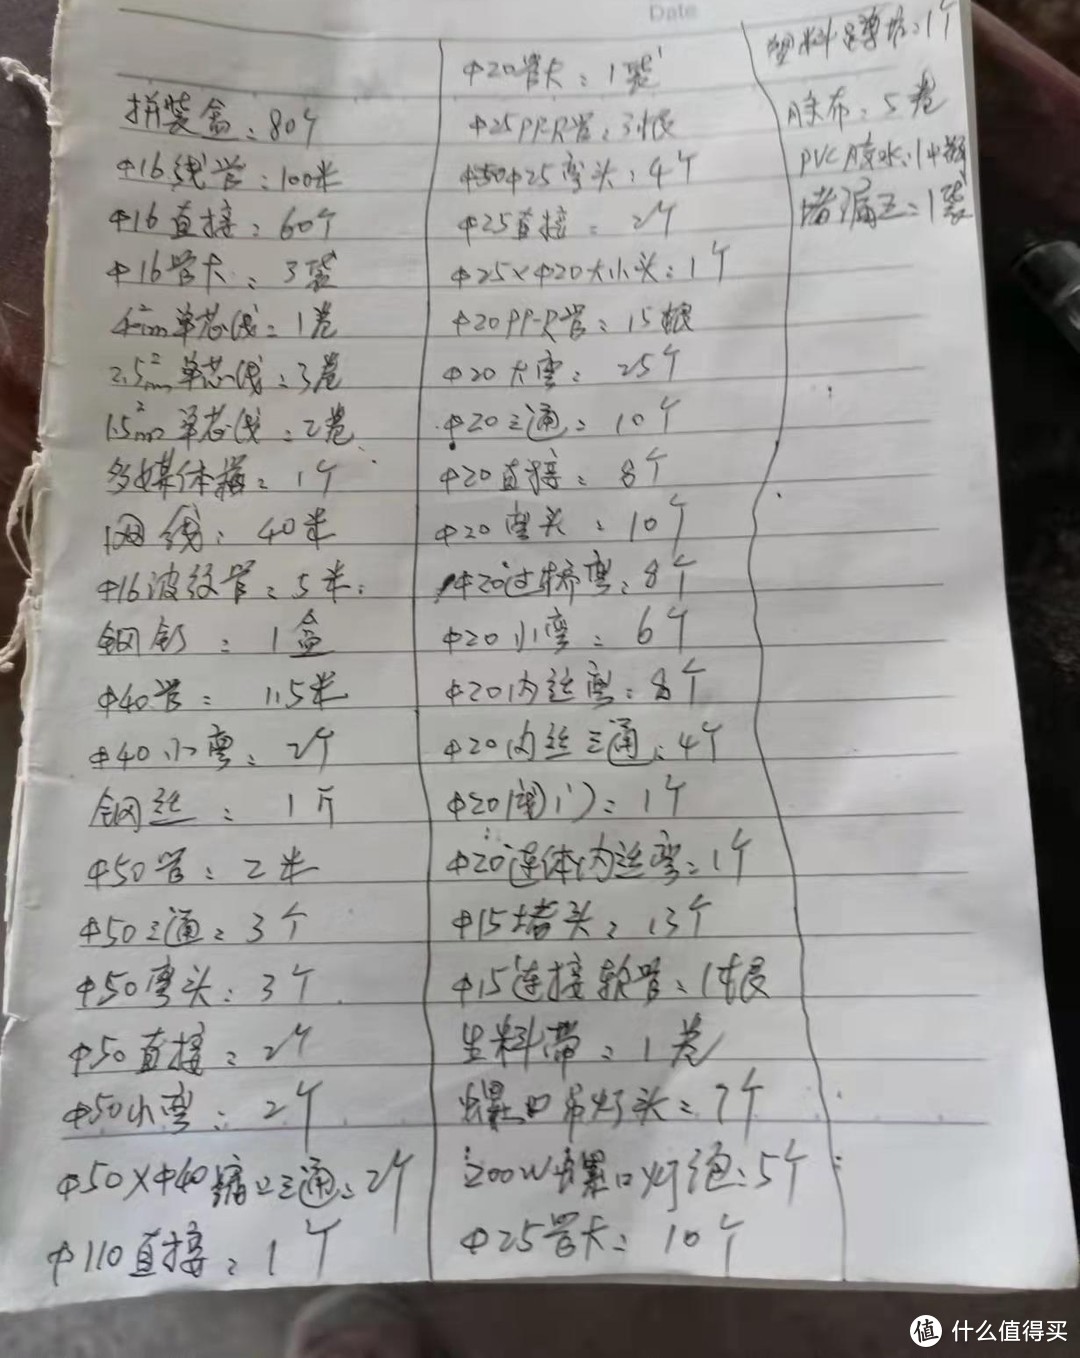 Date
拼装盒：80个
Φ16线管：100米
Φ16直接：60个
Φ16管卡：3袋
4mm²单芯线：1卷
2.5mm²单芯线：3卷
1.5mm²单芯线：2卷
多媒体箱：1个
网线：40米
Φ16波纹管：5米
钢钉：1盒
Φ40管：1.5米
Φ40小弯：2个
钢丝：1斤
Φ50管：2米
Φ50三通：3个
Φ50弯头：3个
Φ50直接：2个
Φ50小弯：2个
Φ50×Φ40缩口三通：2个
Φ110直接：1个
Φ20管卡：1袋
Φ25PP-R管：3根
Φ25弯头：4个
Φ25直接：2个
Φ25×Φ20大小头：1个
Φ20PP-R管：15根
Φ20大弯：25个
Φ20三通：10个
Φ20直接：8个
Φ20弯头：10个
Φ20过桥弯：8个
Φ20小弯：6个
Φ20内丝弯：8个
Φ20内丝三通：4个
Φ20阀门：1个
Φ20连体内丝弯：1个
Φ15堵头：13个
Φ15连接软管：1根
生料带：1卷
螺口吊灯头：7个
200W螺口灯泡：5个
Φ25管卡：10个
塑料：1个
胶布：5卷
PVC胶水：1瓶
堵漏王：1袋
值 什么值得买